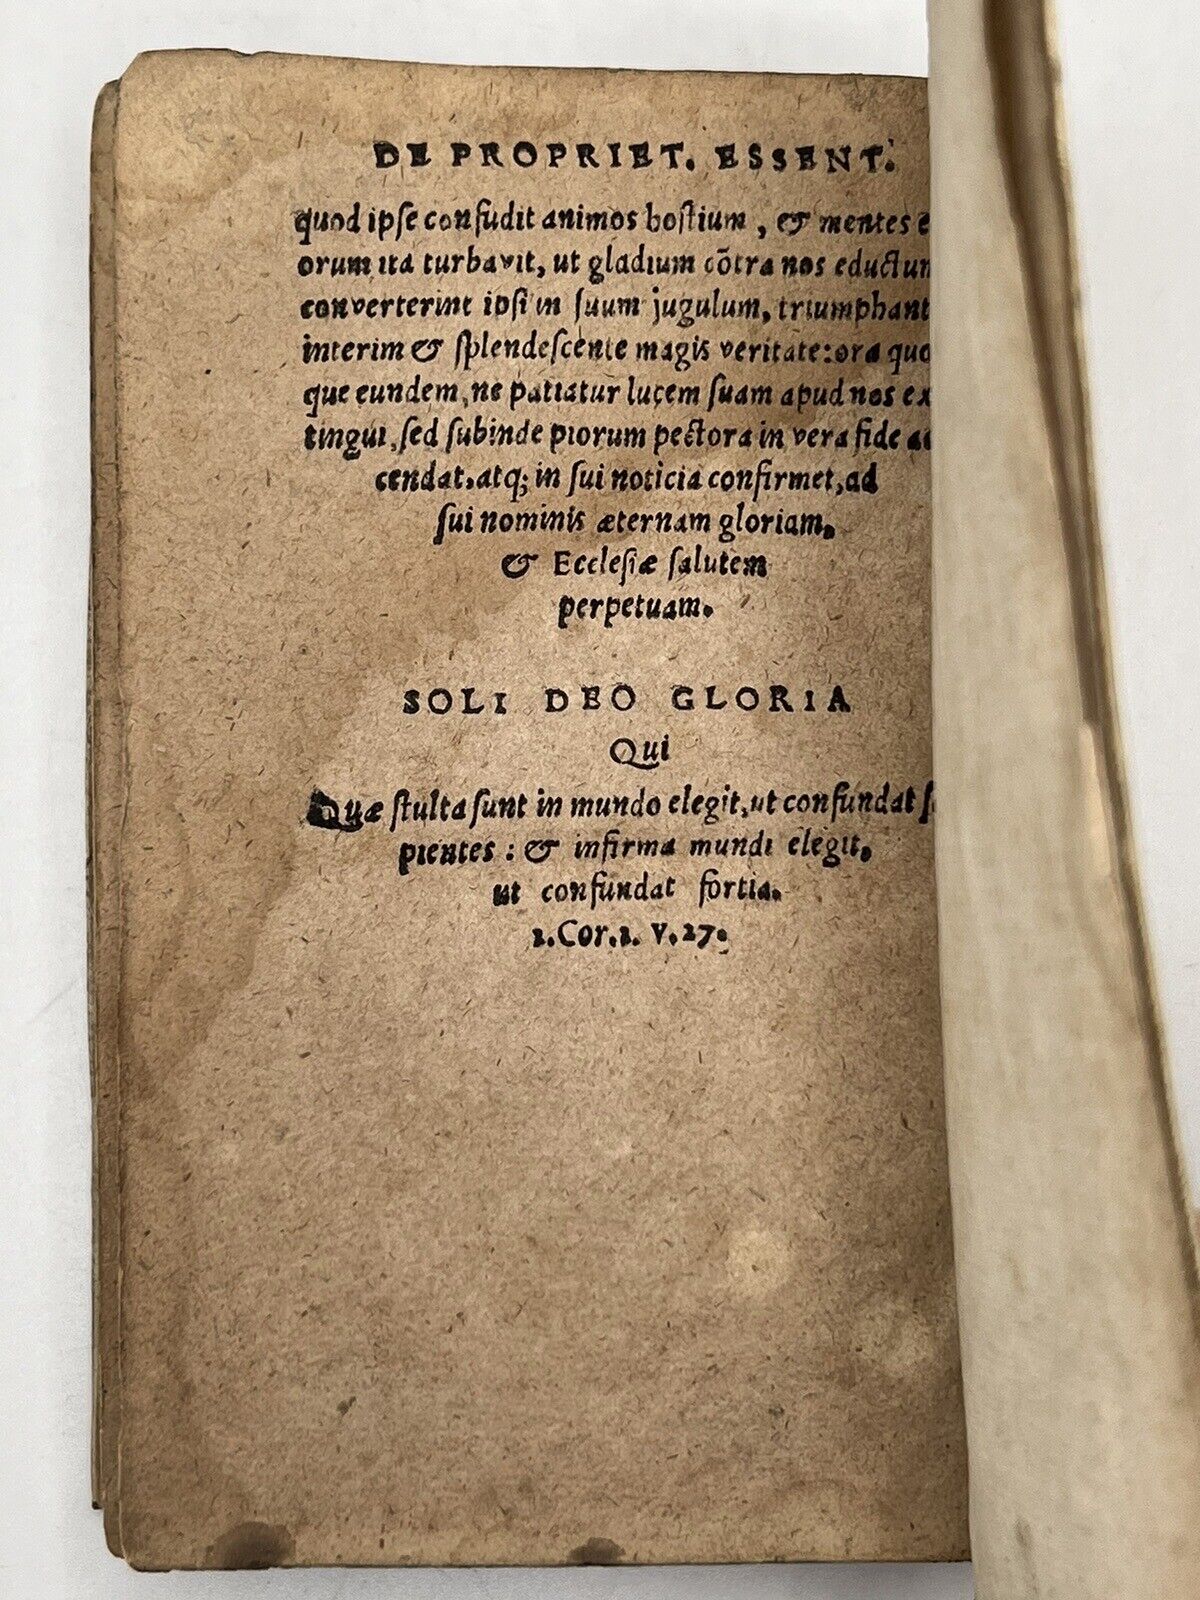 DE PROPRIET. ESSENT.
quod ipſe confudit animos hoſtium, & mentes e
orum ita turbavit, ut gladium cōtra nos eductum
converterint ipſi in ſuum jugulum, triumphant
interim & ſplendeſcente magis veritate: ora quo
que eundem, ne patiatur lucem ſuam apud nos ex
tingui, ſed ſubinde piorum pectora in vera fide ac
cendat, atq; in ſui noticia confirmet, ad
ſui nominis æternam gloriam.
& Eccleſiæ ſalutem
perpetuam.
SOLI DEO GLORIA
Qui
Quæ ſtulta ſunt in mundo elegit, ut confundat ſ
pientes: & infirma mundi elegit,
ut confundat fortia.
1. Cor. 1. V. 27.